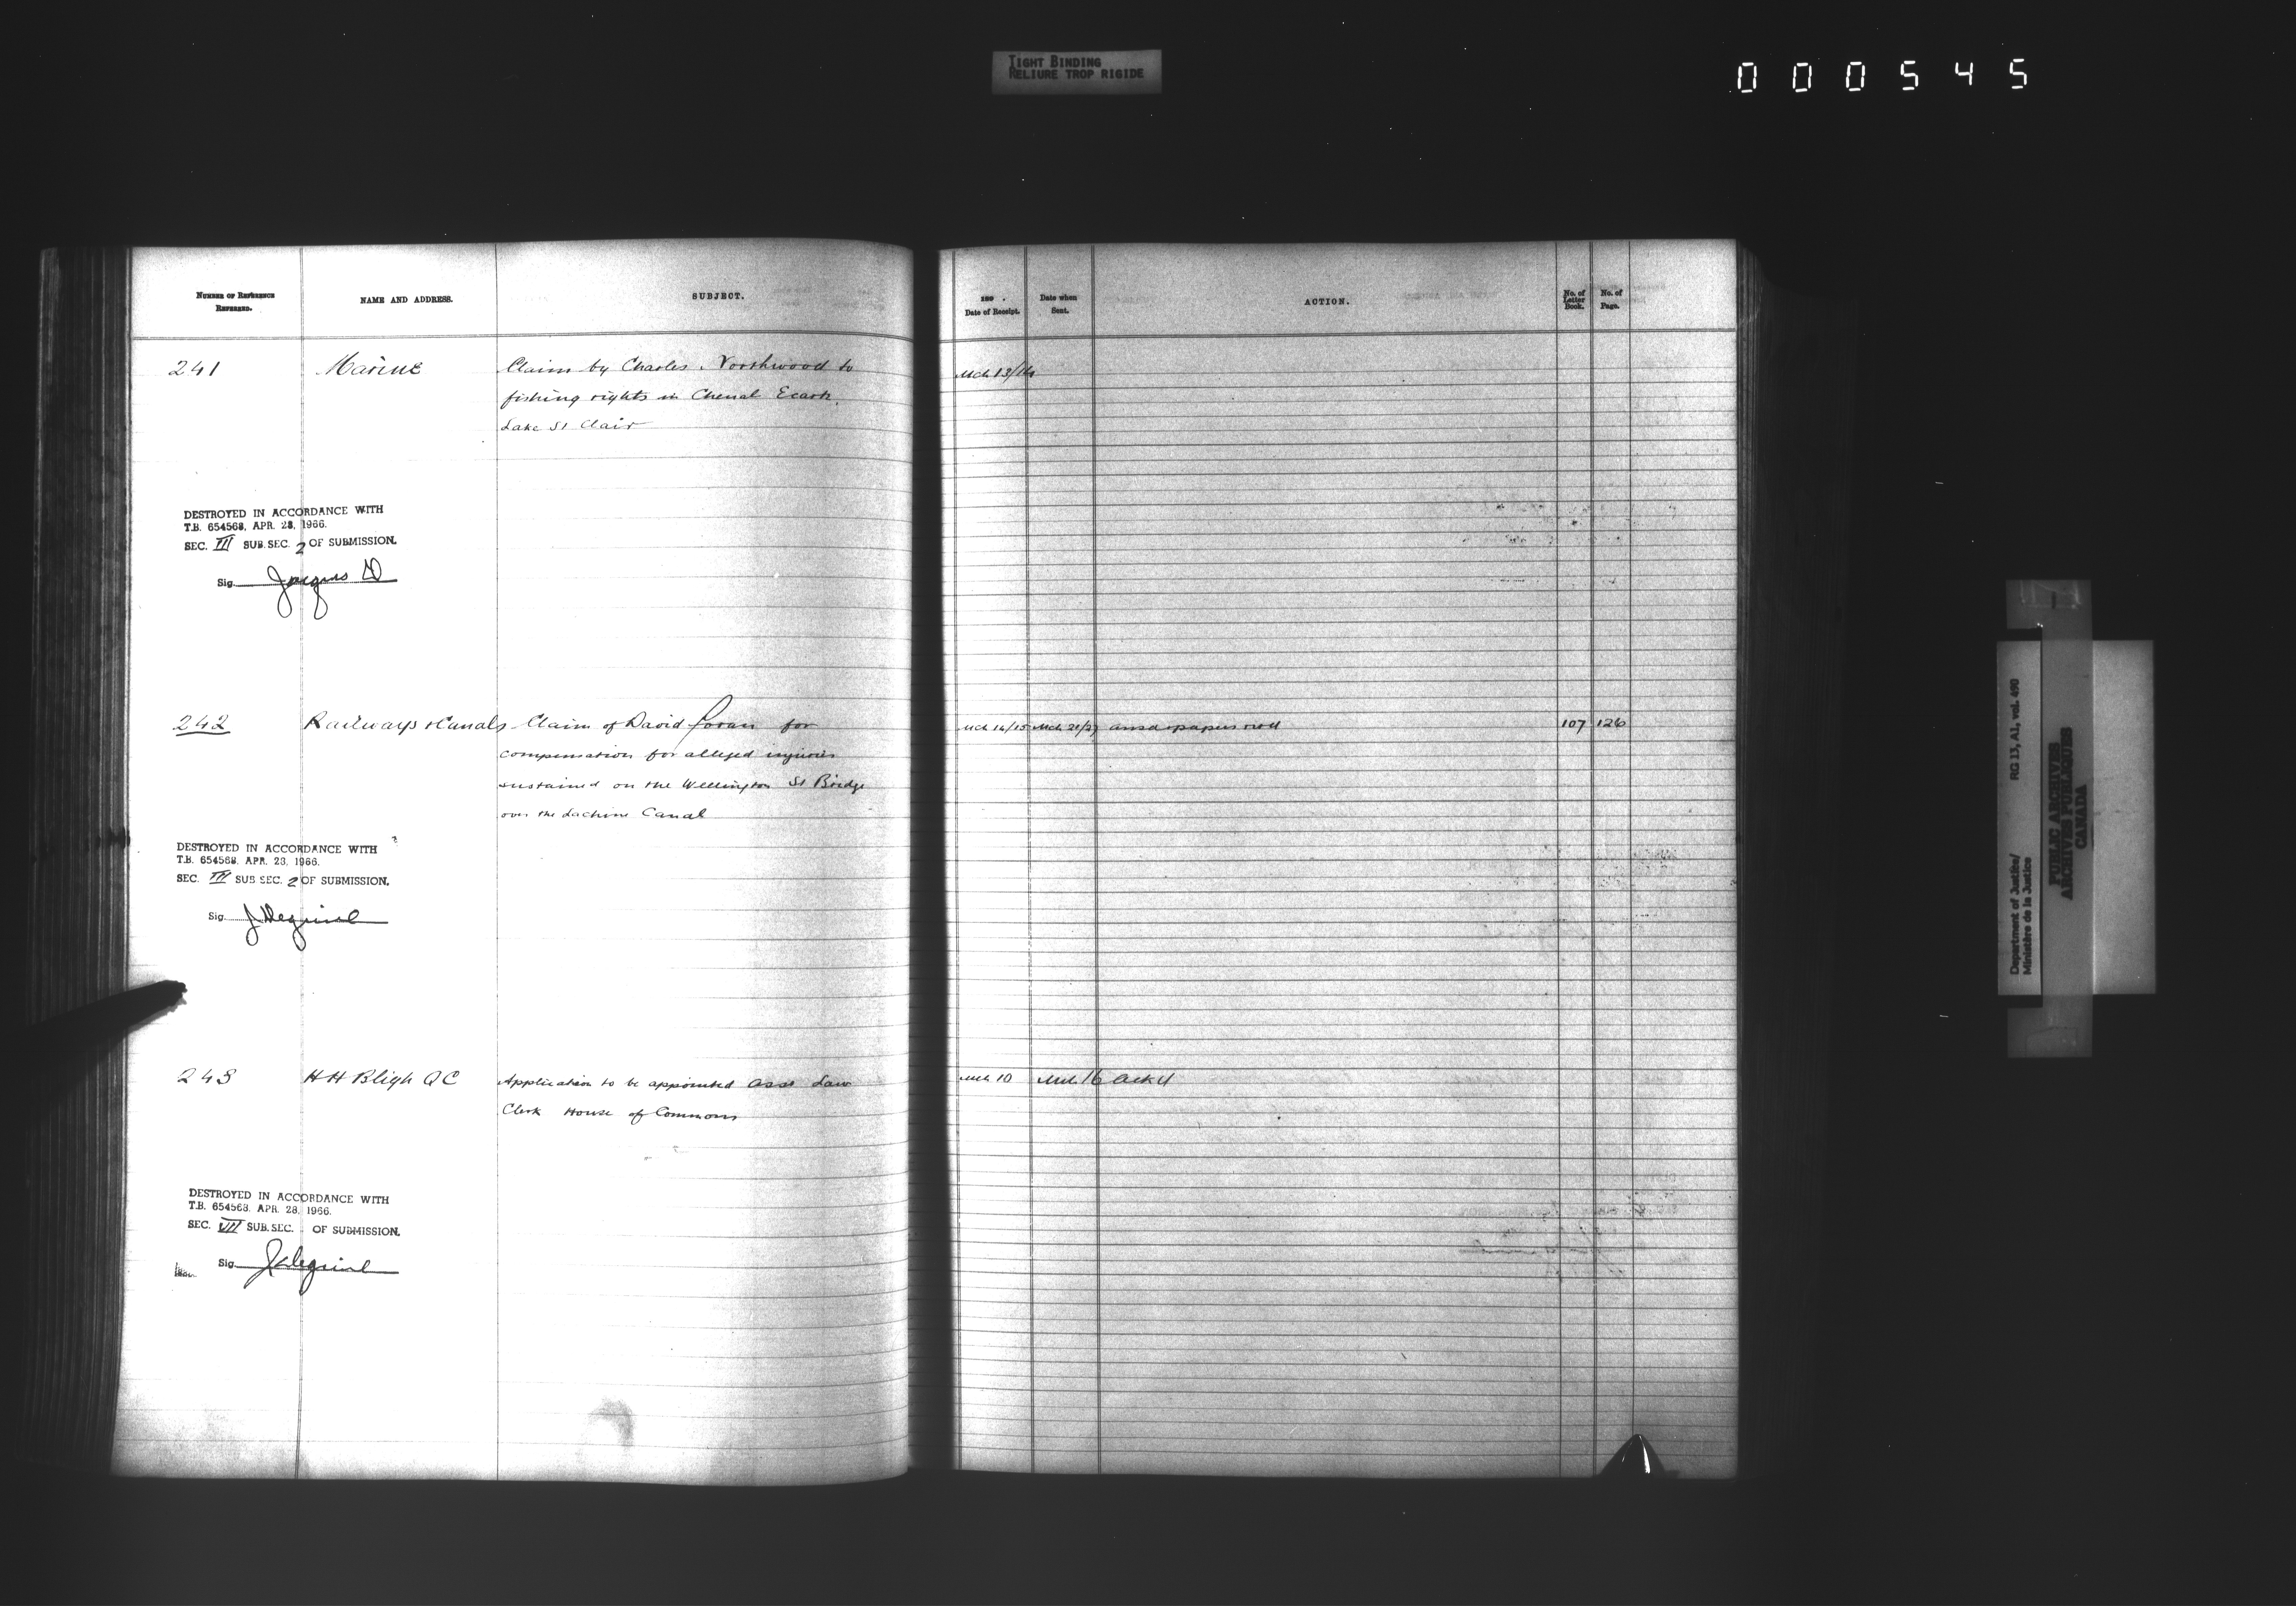 TIGHT BINDING
RELIURE TROP RIGIDE
000545
NUMBER OF REFERENCE
REFERRED.
NAME AND ADDRESS.
SUBJECT.
Date of Receipt.
Date when
Sent.
ACTION.
No. of
Letter
Book.
No. of
Page.
241 Marine Claim by Charles Northwood to Mch 13/14
fishing rights in Chenal Ecarte
Lake St Clair
DESTROYED IN ACCORDANCE WITH
T.B. 654568, APR. 28, 1966.
SEC. III SUB. SEC. 2 OF SUBMISSION.
Sig.
242 Railways & Canals Claim of David Foran for Mch 14/15 Mch 21/27 107 126
compensation for alleged injuries
sustained on the Wellington St Bridge
over the Lachine Canal
DESTROYED IN ACCORDANCE WITH
T.B. 654568, APR. 28, 1966.
SEC. III SUB SEC. 2 OF SUBMISSION.
Sig.
243 H H Bligh QC Application to be appointed asst Law Mch 10 Mch 16 Ackd
Clerk House of Commons
DESTROYED IN ACCORDANCE WITH
T.B. 654568, APR. 28, 1966.
SEC. VII SUB. SEC. OF SUBMISSION.
Sig.
Department of Justice/ RG 13, A1, vol. 490
Ministère de la Justice
PUBLIC ARCHIVES
ARCHIVES PUBLIQUES
CANADA